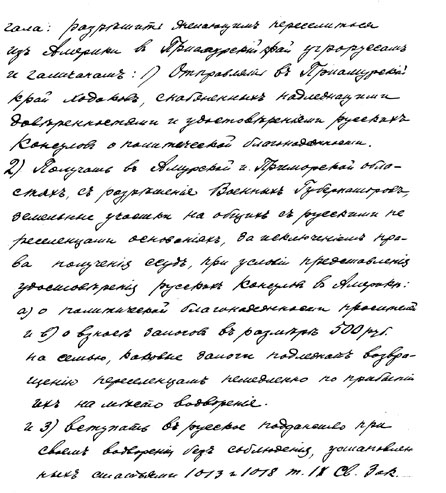 гала: разрѣшить желающимъ переселиться
изъ Америки въ Приамурскій край угроруссамъ
и галичанамъ: 1) Отправлять въ Приамурскій
край ходоковъ, снабженныхъ надлежащими
довѣренностями и удостовѣреніями русскихъ
Консуловъ о политической благонадежности.
2) Получать въ Амурской и Приморской обла-
стяхъ, съ разрѣшенія Военныхъ Губернаторовъ,
земельные участки на общихъ съ русскими пе
реселенцами основаніяхъ, за исключеніемъ пра-
ва полученія ссудъ, при условіи представленія
удостовѣренія русскихъ Консуловъ въ Америкѣ:
а) о политической благонадежности просителей
и б) о взносѣ залоговъ въ размѣрѣ 500 руб.
на семью, каковые залоги подлежатъ возвра-
щенію переселенцамъ немедленно по прибытіи
ихъ на мѣсто водворенія.
и 3) вступать въ русское подданство при
своемъ водвореніи безъ соблюденія, установлен
ныхъ статьями 1013 и 1018 т. IX Св. Зак.